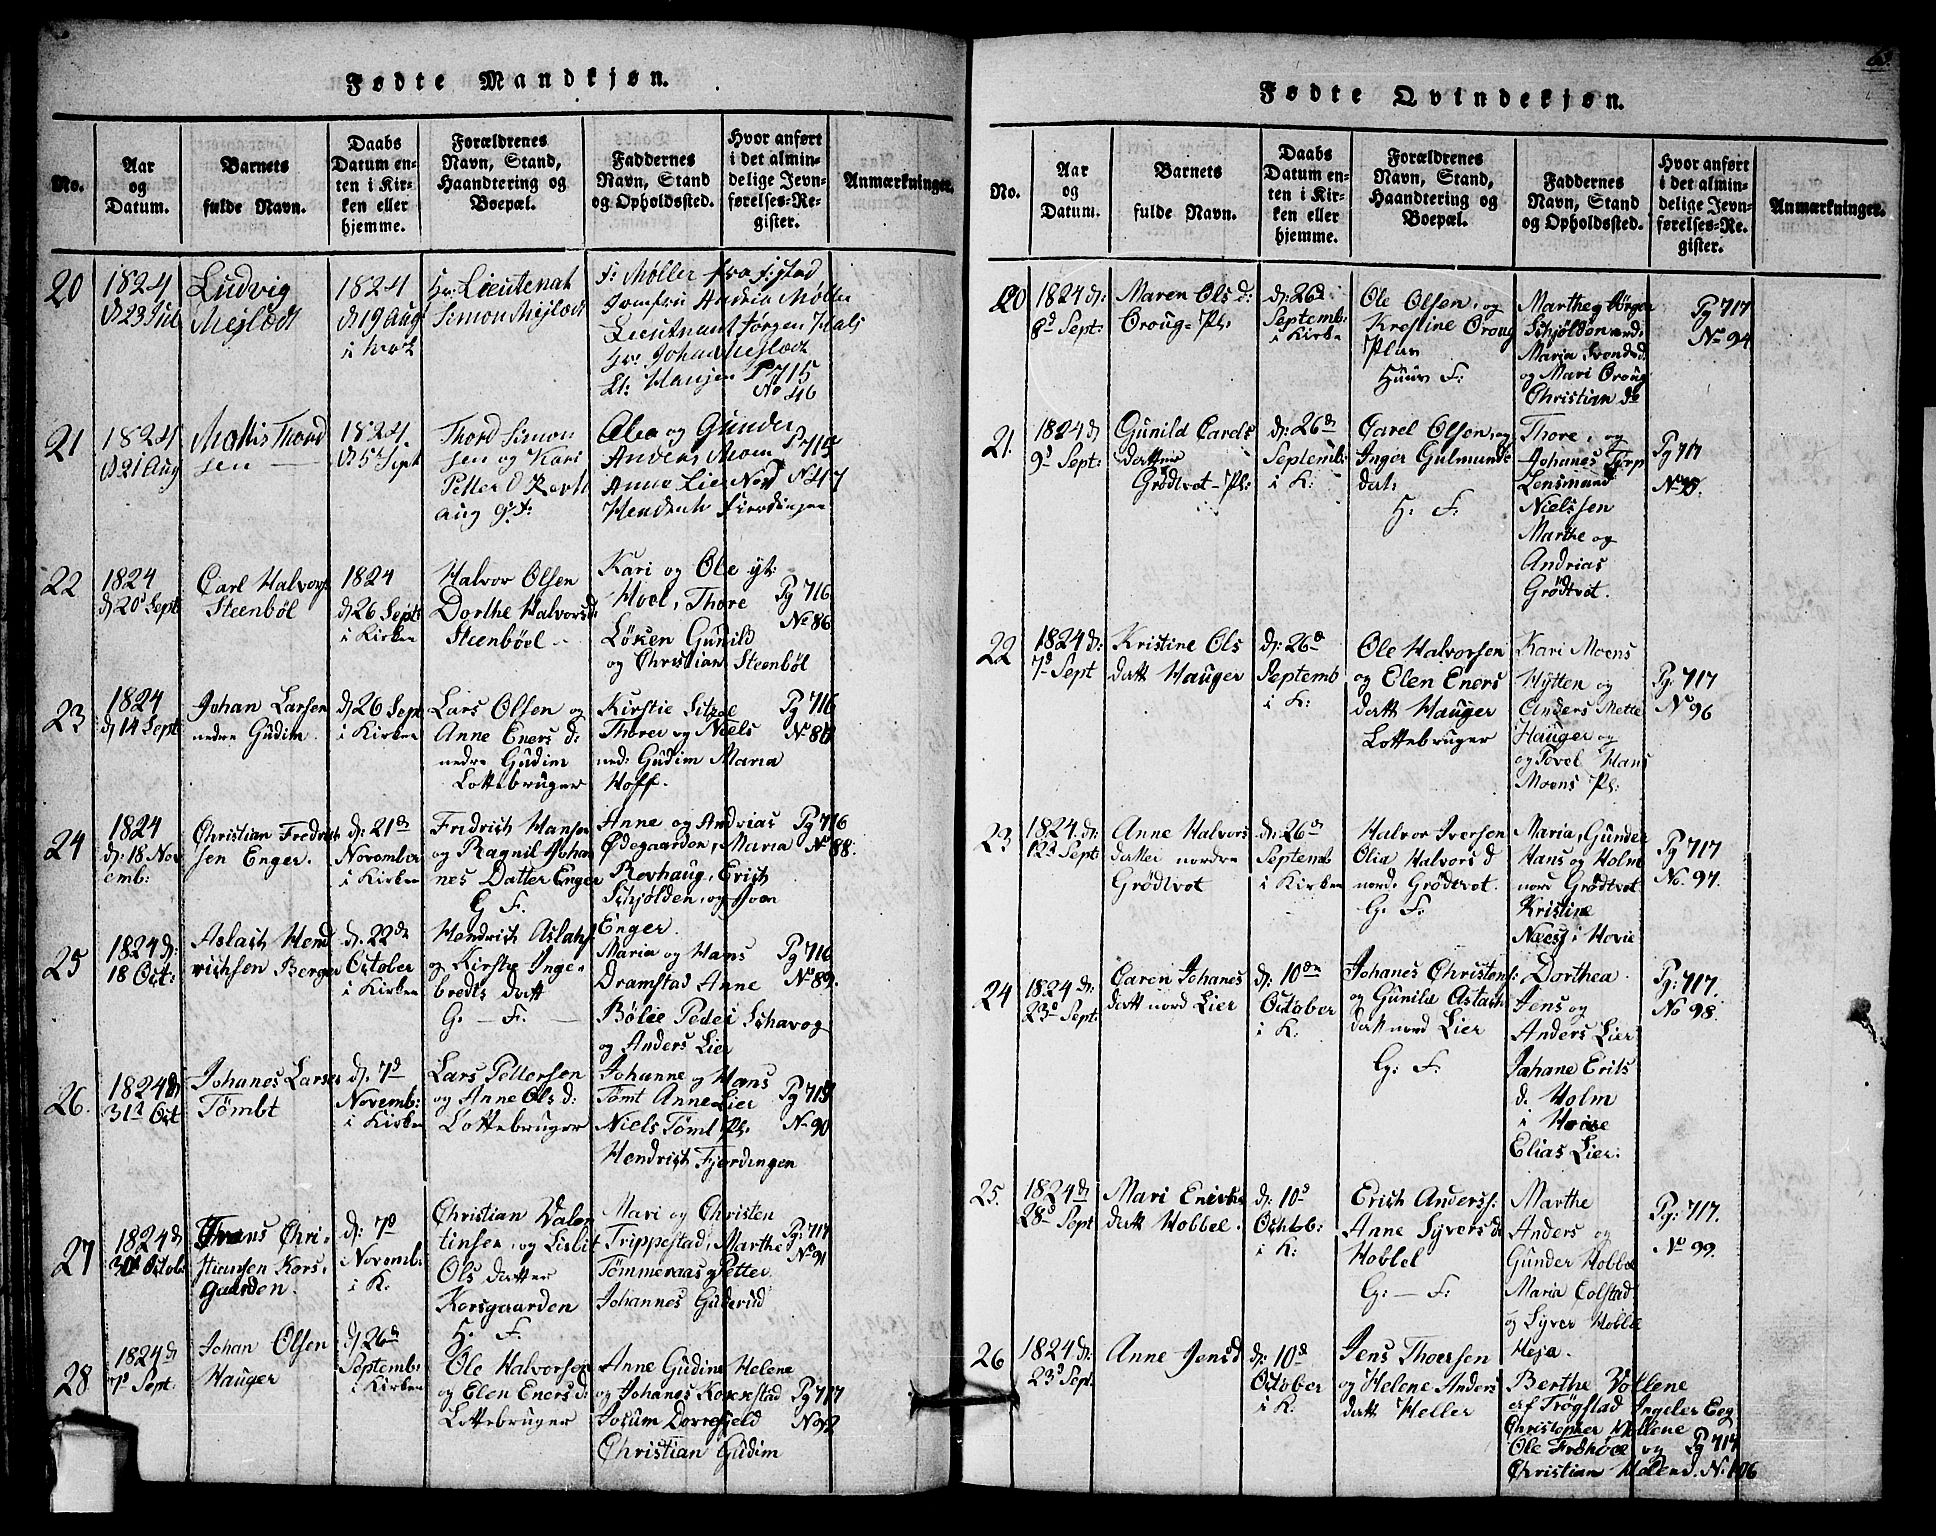 Fødte Mandkjøn.
No.
Aar
og
Datum.
Barnets
fulde Navn.
Daabs
Datum en-
ten i Kir-
ken eller
hjemme.
Forældrenes
Navn, Stand,
Haandtering og
Boepæl.
Faddernes
Navn, Stand
og Opholdssted.
Hvor anført
i det almin-
delige Jevn-
førelses-Re-
gister.
Anmærkninger.
20
1824
d 23 Jul
Ludvig
Mejlædt
1824
d 19 Aug
Hr: Lieutenat
Simon Mejlædt
F: Møller fra
Jomfru Andria Møller
Lieutnant Jørgen
Hr: Johan Mejlædt
Lt: Hansen P 715
No 46
21
1824
d 21 Aug
Mathis Thord
sen
1824
d 5t Sept
Thord Simon
sen og Kari
Petter d
g: F:
og Gunder
Anders Moen P 715
Anne Lie Nord N 47
Hendrich Fierdingen
22
1824
d 20d Sept
Carl Halvors
Steenbøl
1824
d 26 Sept
i Kirken
Halvor Olsen
Dorthe Halvorsd:
Steenbøel
Kari og Ole yt:
Hoel, Thore
Løken Gunild
og Christian Steenbøl
Pg 716
No 86
23
1824
d, 14 Sept
Johan Larsen
nedre Gudim
d 26 Sept
i Kirken
Lars Olsen og
Anne Eners d:
nedre Gudim
Lottebruger
Kirstie Sitzel
Thorer og Niels
ned: Gudim Maria
Hoff.
Pg 716
24
1824
d: 18 Nov
emb:
Christian Fredrich
sen Enger.
d: 21de
November
i Kirken
Fredrich Hansen
og Ragnil Johan
nes Datter Enger
G F.
Anne og Andrias
Ødegaarden, Maria
Rovhaug, Erich
Schjølden, og Iver
Enger.
Pg 716
No 88.
25
1824 d:
18 Oct:
Aslach Hend
richsen Berger
d. 22de
October
i Kirken
Hendrich Aslachs
og Kirsty Inge-
bredts datt
G: - F. -
Maria og Hans
Dramstad Anne
Bølie Peder Schavog
og Anders Lier
Pg 716
No 89.
26.
1824 d
31d Oct
Johanes Larsen
Tømbt
d. 7d
Novemb:
i Kirken
Lars Pettersen
og Anne Ols d:
Lottebruger
Johanne og Hans
Tømt Anne Lier
Niels Tømt Pl:
Hendrich Fjerdingen
No 90
27
1824 d
30d Octob:
Frans Chri-
stiansen Kors,
gaarden.
d: 7d
Novemb:
i K.
Christian Valen
tinsen, og Lisbit
Ols datter
Korsgaarden
H. F.
Mari og Christen
Trippestad, Marthe
Tømmeraas og Petter
Johannes Guderud
Pg 717
No 91
28
1824 d
7d Sept.
Johan Olsen
Hauger
d, 26de
Septemb:
i Kirken
Ole Halvorsen
og Elen Eners d:
Lottebruger
Anne Gudim Helene
og Johanes Kokkstad
Josum Dovrefjeld
Christian Gudim
Pg 717
No 92
Fødte Qvindekjøn.
No.
Aar
og
Datum.
Barnets
fulde Navn.
Daabs
Datum en-
ten i Kir-
ken eller
hjemme.
Forældrenes
Navn, Stand,
Haandtering og
Boepæl.
Faddernes
Navn, Stand
og Opholdssted.
Hvor anført
i det almin-
delige Jevn-
førelses-Re-
gister.
Anmærkninger.
20
1824 d:
8d Sept:
Maren Ols d:
Oroug- Pl:
d: 26d
Septemb:
i Kirke
Ole Olsen, og
Kristine Oroug
Plas
Huus F:
Marthe og Børger
Maria
og Mari Oroug
Christian do
Pg 717
No 94
21.
1824 d
9d Sept:
Gunild Carels
datter
Grödtvot - Pl:
d: 26de
Septemb:
i K:
Carel Olsen, og
Inger Gulmunds
dat:
H. F.
Thore, og
Johanes Torp
Lensmand
Nielssen
Marthe og
Andrias
Grödtvot.
Pg 717
No 95.
22
1824 d:
7d Sept
Kristine Ols
datt Hauger
d: 26de
Septemb
i K:
Ole Halvorsen
og Elen Eners
datt Hauger
Lottebruger
Kari Moens
Hytten og
Anders Mette
Hauger og
og Tovel Hans
Moens Pl:
Pg: 717
No 96
23
1824. d:
12d Sept
Anne Halvors
datter nordre
Grödtvot
d: 26de
Septemb
i Kirken
Halvor Iversen
Olia Halvors d
nord: Grödtvot.
G: F:
Maria, Gunder
Hans og Holm
nord Grödtvot
Kristine
Næss i Hovie
Pg 717
No. 97.
24
1824 d:
23d Sept:
Caren Johanes
datt nord Lier
d: 10de
October
i K.
Johanes Christens:
og Gunild Aslach
datt nord Lier
G: F.
Dorthea
Jens og
Anders Lier
Johane Erits
d. Holm
i Hovie
Elias Lier:
Pg: 717.
No 98.
25.
1824 d
28d Sept
Mari Erichs
datt Hobbel.
d: 10d
Octob:
i K:
Erich Anderss:
Anne Syversd
Hobbel
G: - F:
Marthe
Anders og
Gunder Hobbel
Maria Colstad
og Syver Hobbel
Heja.
Pg: 717.
No 99.
26
1824 d:
23d Sept.
Anne Jensd
d: 10d
October
i K:
Jens Thoersen
og Helene Anders
datt Heller
Berthe Vollene
af Trøgstad Ingeler Eeg
Christopher Vollene
Ole Frøhoel og
Christian